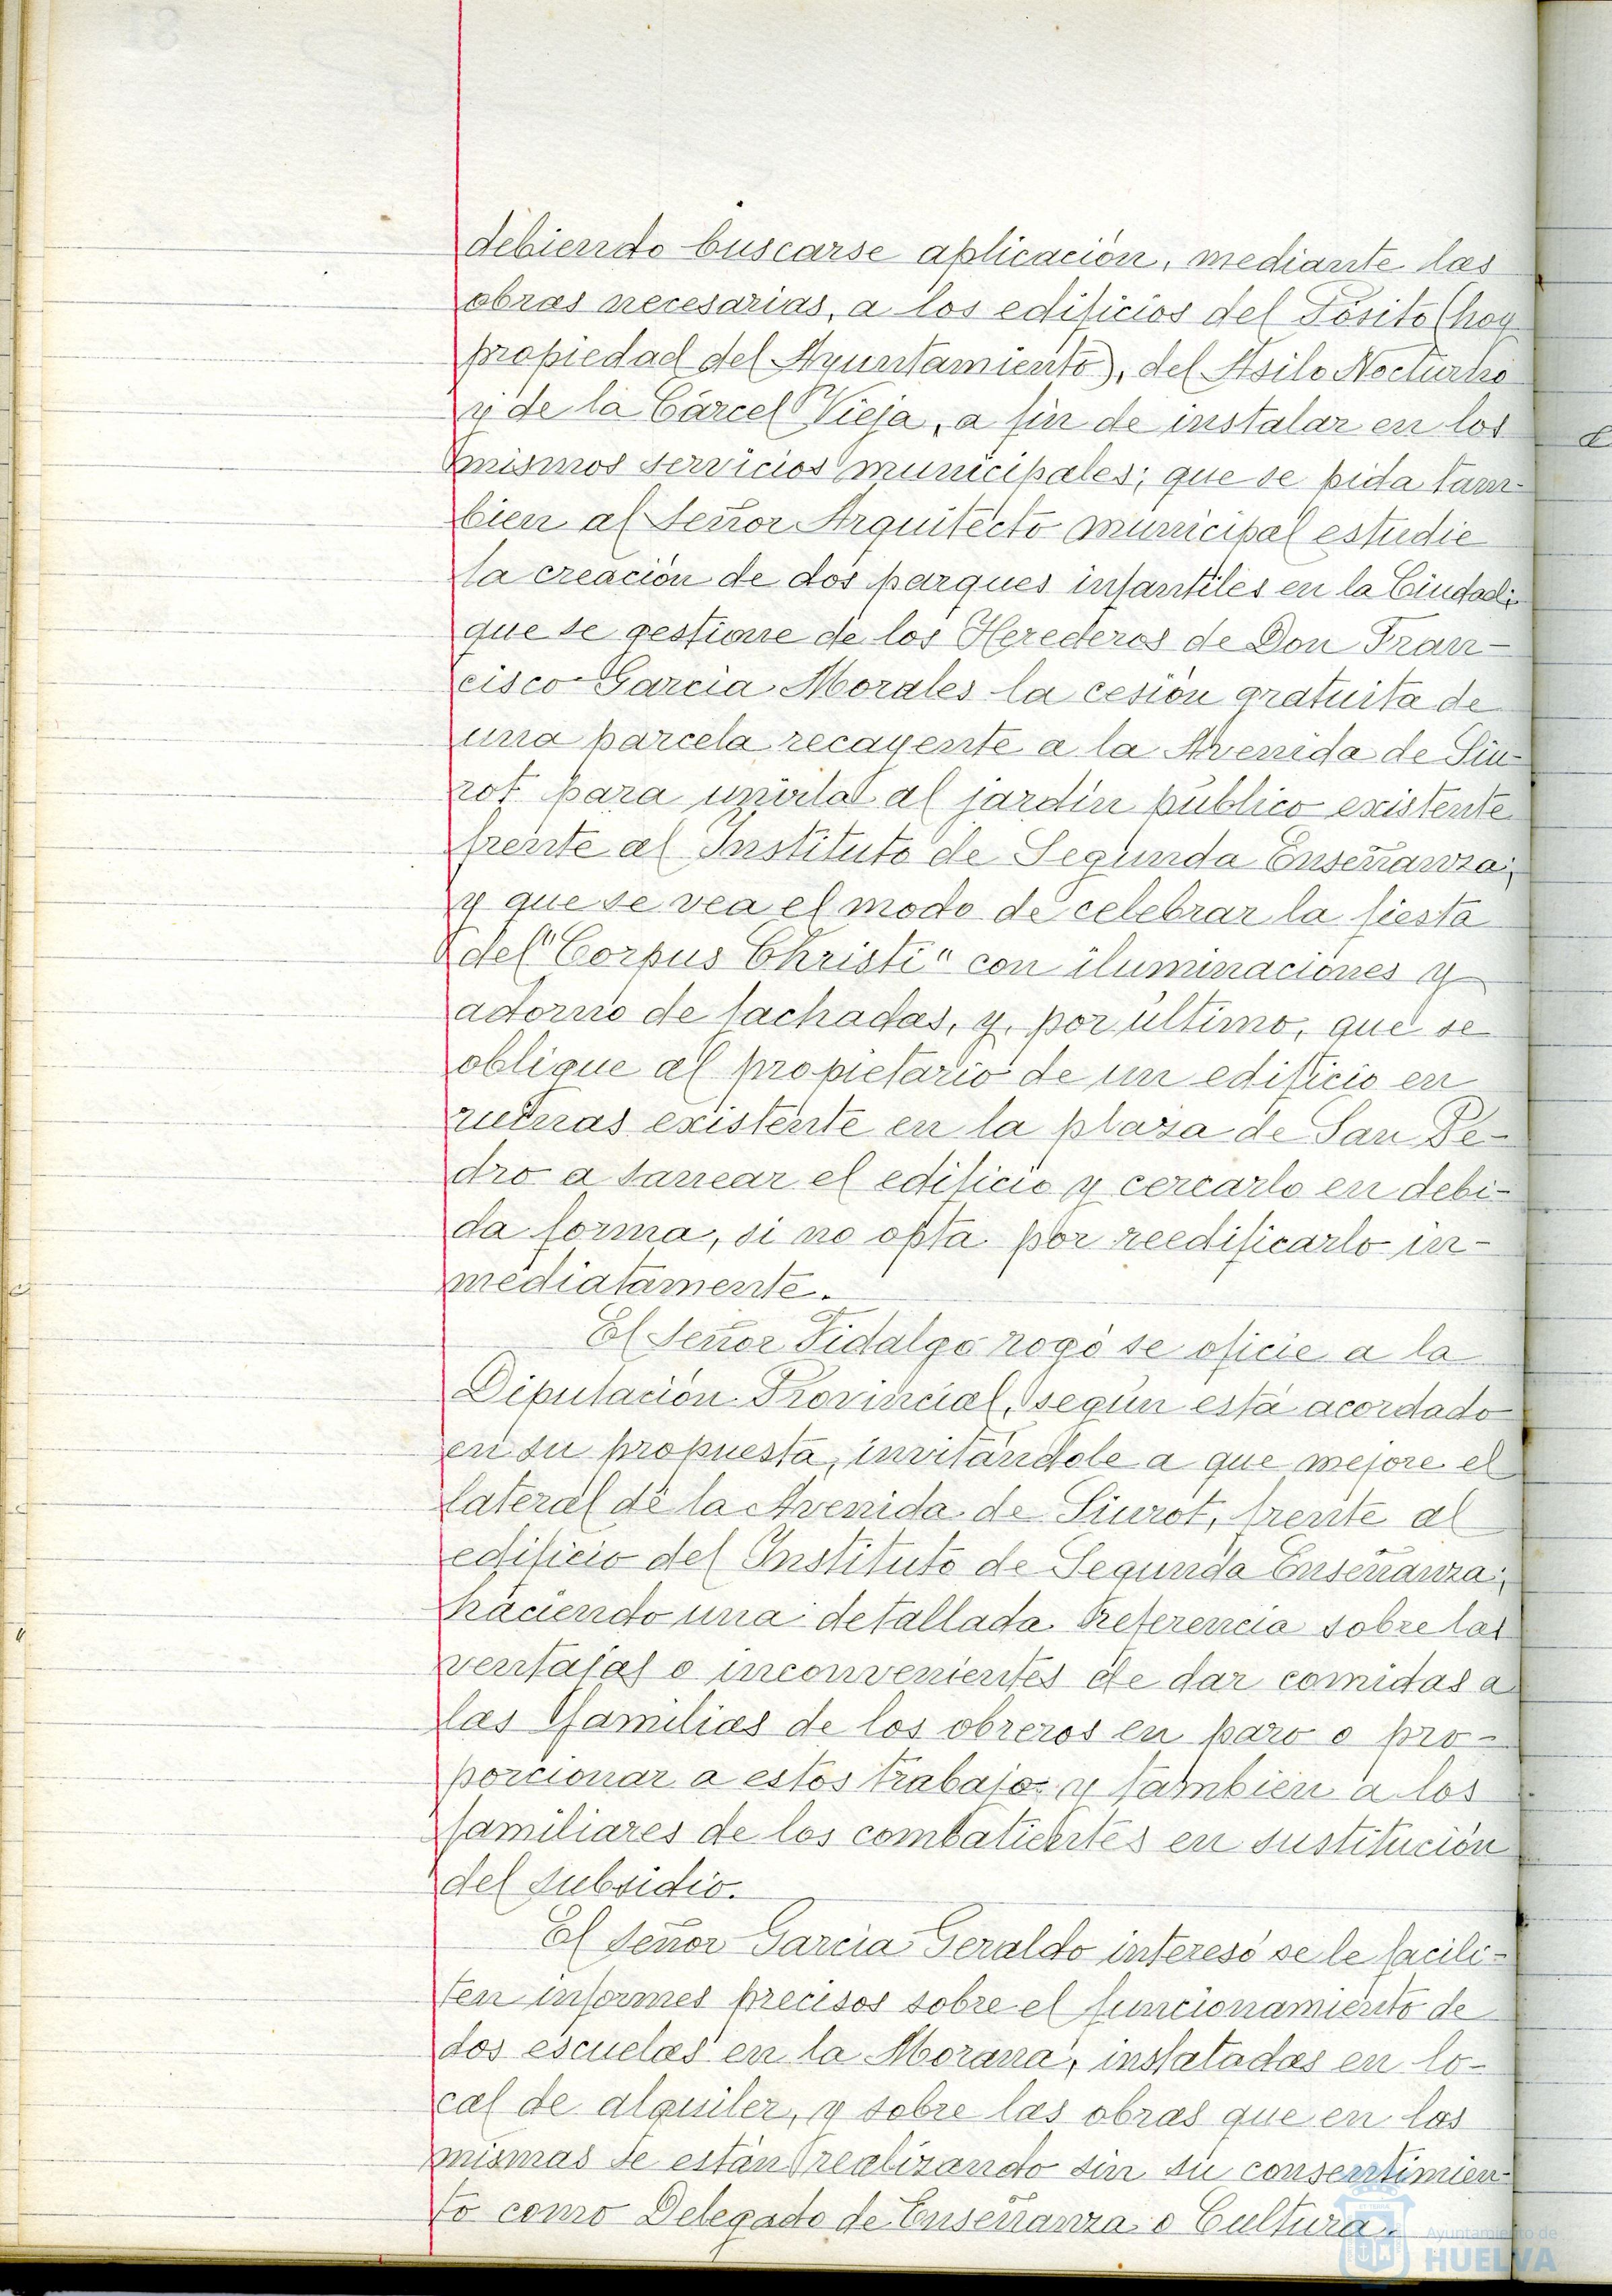 debiendo buscarse aplicación, mediante las
obras necesarias, a los edificios del Pósito (hoy
propiedad del Ayuntamiento), del Asilo Nocturno
y de la Cárcel Vieja, a fin de instalar en los
mismos servicios municipales; que se pida tam-
bien al Señor Arquitecto municipal estudie
la creación de dos parques infantiles en la Ciudad;
que se gestione de los Herederos de Don Fran-
cisco García Morales la cesión gratuita de
una parcela recayente a la Avenida de Siu-
rot para unirla al jardín público existente
frente al Instituto de Segunda Enseñanza;
y que se vea el modo de celebrar la fiesta
del "Corpus Christi" con iluminaciones y
adorno de fachadas, y, por último, que se
obligue al propietario de un edificio en
ruinas existente en la plaza de San Pe-
dro a sanear el edificio y cercarlo en debi-
da forma, si no opta por reedificarlo in-
mediatamente.
El Señor Fidalgo rogó se oficie a la
Diputación Provincial, según está acordado
en su propuesta, invitándole a que mejore el
lateral de la Avenida de Siurot, frente al
edificio del Instituto de Segunda Enseñanza;
haciendo una detallada referencia sobre las
ventajas o inconvenientes de dar comidas a
las familias de los obreros en paro o pro-
porcionar a estos trabajo; y tambien a los
familiares de los combatientes en sustitución
del subsidio.
El Señor García Geraldo interesó se le facili-
ten informes precisos sobre el funcionamiento de
dos escuelas en la Morana, instaladas en lo-
cal de alquiler, y sobre las obras que en las
mismas se están realizando sin su consentimien-
to como Delegado de Enseñanza o Cultura.
Ayuntamiento de
HUELVA